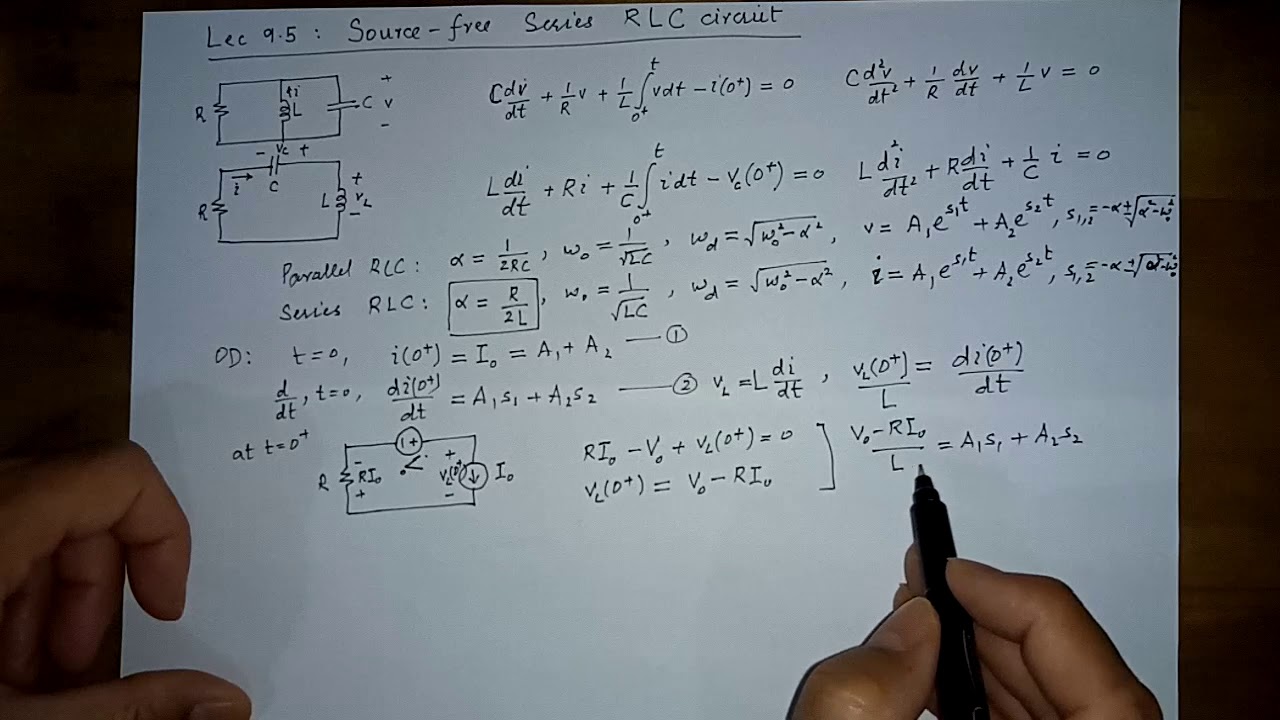 Lec 9.5 : Source-free Series RLC circuit
R i L C + v −
C dv/dt + 1/R v + 1/L ∫_{0⁺}^{t} v dt − i(0⁺) = 0
C d²v/dt² + 1/R dv/dt + 1/L v = 0
R i − v_c + C L + v_L −
L di/dt + Ri + 1/C ∫_{0⁺}^{t} i dt − V_c(0⁺) = 0
L di²/dt² + R di/dt + 1/C i = 0
Parallel RLC: α = 1/2RC , ω₀ = 1/√LC , ω_d = √(ω₀²−α²) , v = A₁e^{s₁t} + A₂e^{s₂t} , s₁,₂ = −α ± √(α²−ω₀²)
Series RLC: α = R/2L , ω₀ = 1/√LC , ω_d = √(ω₀²−α²) , i = A₁e^{s₁t} + A₂e^{s₂t} , s₁,₂ = −α ± √(α²−ω₀²)
OD: t=0, i(0⁺) = I₀ = A₁ + A₂ — ①
d/dt, t=0, di(0⁺)/dt = A₁s₁ + A₂s₂ — ② v_L = L di/dt , v_L(0⁺)/L = di(0⁺)/dt
at t=0⁺
R − RI₀ + + V₀ + v_L(0⁺) − I₀
RI₀ − V₀ + v_L(0⁺) = 0
v_L(0⁺) = V₀ − RI₀
V₀ − RI₀/L = A₁s₁ + A₂s₂